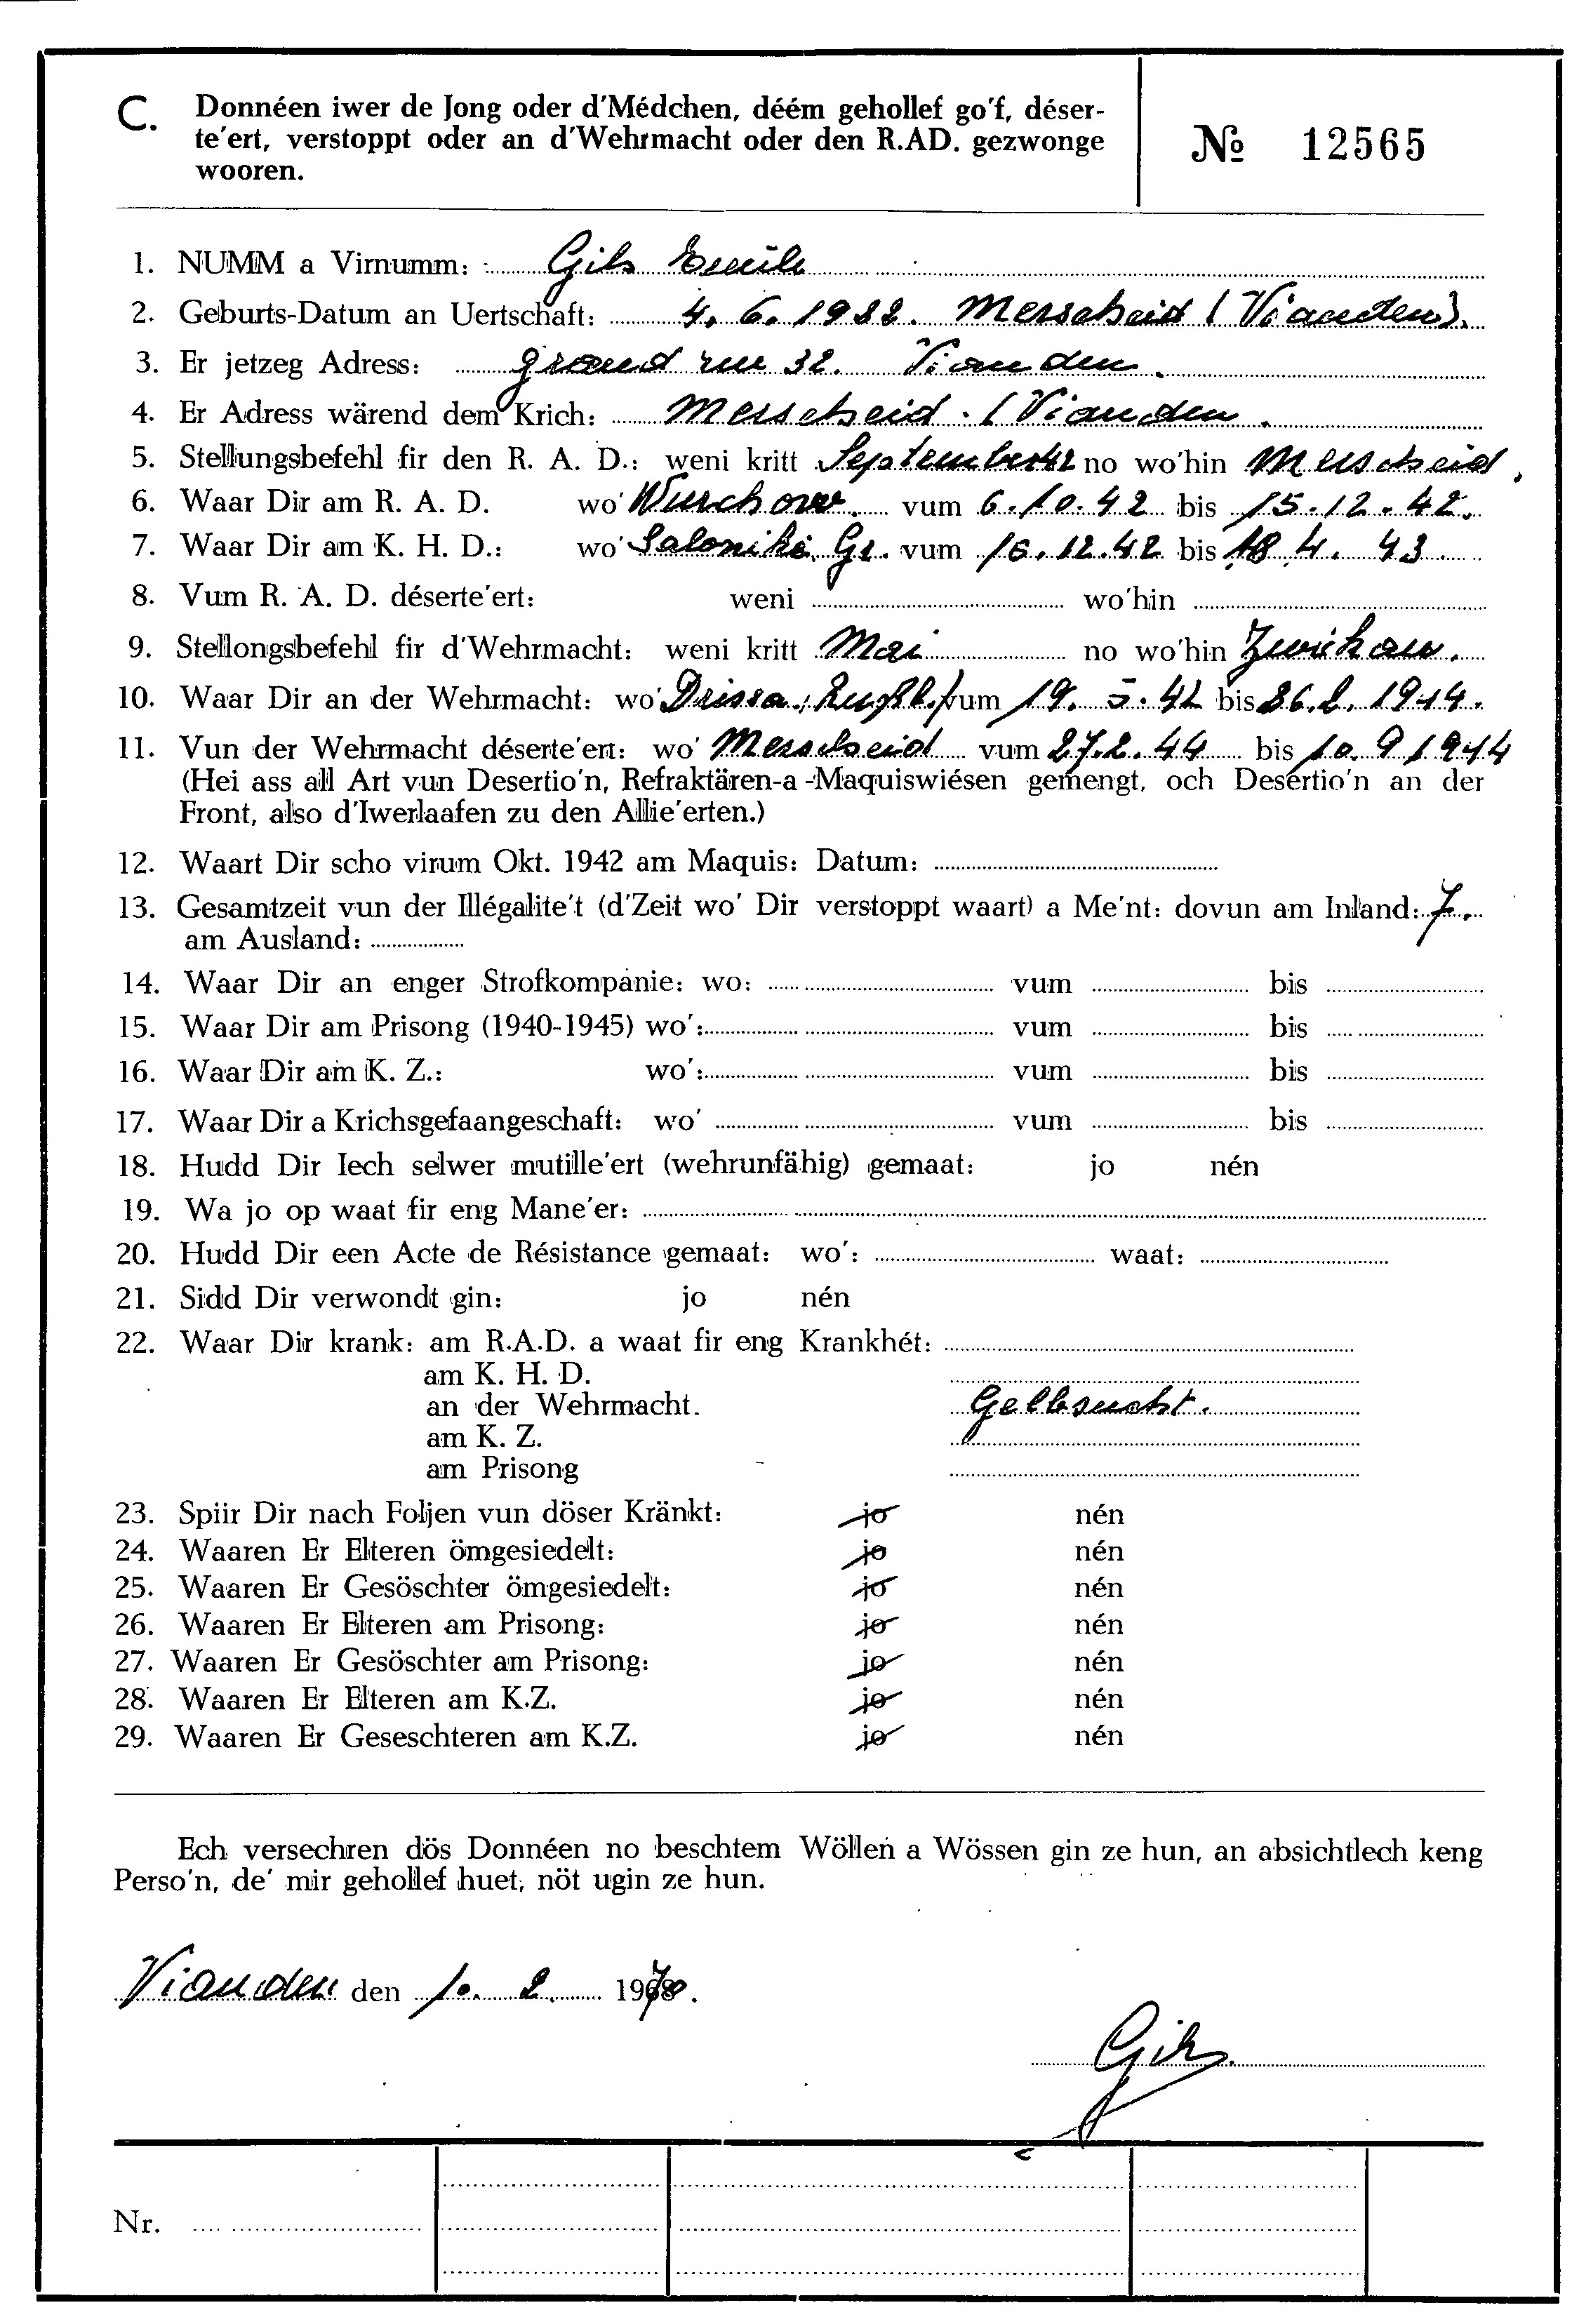 C. Donnéen iwer de Jong oder d'Médchen, déém gehollef go'f, déser-
te'ert, verstoppt oder an d'Wehrmacht oder den R.AD. gezwonge
wooren.
№ 12565
1. NUMM a Virnumm: Gils Emile
2. Geburts-Datum an Uertschaft: 4. 6. 1922. Merscheid (Vianden).
3. Er jetzeg Adress: grand rue 32. Vianden.
4. Er Adress wärend dem Krich: Merscheid. (Vianden.
5. Stellungsbefehl fir den R. A. D.: weni kritt September 42 no wo'hin Merscheid.
6. Waar Dir am R. A. D. wo' Wurchow. vum 6.10.42 bis 15.12.42.
7. Waar Dir am K. H. D.: wo' Saloniki, Gr. vum 16.12.42 bis 18.4.43
8. Vum R. A. D. déserte'ert: weni wo'hin
9. Stellongsbefehl fir d'Wehrmacht: weni kritt Mai no wo'hin Zwickau.
10. Waar Dir an der Wehrmacht: wo' Drissa, vum 19. 5. 42 bis 26.2.1944.
11. Vun der Wehrmacht déserte'ert: wo' Merscheid vum 27.2.44 bis 10.9 1944
(Hei ass all Art vun Desertio'n, Refraktären-a-Maquiswiésen gemengt, och Desertio'n an der
Front, also d'Iwerlaafen zu den Allie'erten.)
12. Waart Dir scho virum Okt. 1942 am Maquis: Datum:
13. Gesamtzeit vun der Illégalite't (d'Zeit wo' Dir verstoppt waart) a Me'nt: dovun am Inland: 7.
am Ausland:
14. Waar Dir an enger Strofkompanie: wo: vum bis
15. Waar Dir am Prisong (1940-1945) wo': vum bis
16. Waar Dir am K. Z.: wo': vum bis
17. Waar Dir a Krichsgefaangeschaft: wo' vum bis
18. Hudd Dir Iech selwer mutille'ert (wehrunfähig) gemaat: jo nén
19. Wa jo op waat fir eng Mane'er:
20. Hudd Dir een Acte de Résistance gemaat: wo': waat:
21. Sidd Dir verwondt gin: jo nén
22. Waar Dir krank: am R.A.D. a waat fir eng Krankhét:
am K. H. D.
an der Wehrmacht. Gelbsucht.
am K. Z.
am Prisong
23. Spiir Dir nach Foljen vun döser Kränkt: jo nén
24. Waaren Er Elteren ömgesiedelt: jo nén
25. Waaren Er Gesöschter ömgesiedelt: jo nén
26. Waaren Er Elteren am Prisong: jo nén
27. Waaren Er Gesöschter am Prisong: jo nén
28. Waaren Er Elteren am K.Z. jo nén
29. Waaren Er Geseschteren am K.Z. jo nén
Ech versechren dös Donnéen no beschtem Wöllen a Wössen gin ze hun, an absichtlech keng
Perso'n, de' mir gehollef huet, nöt ugin ze hun.
Vianden den 10. 2. 1970.
Gils
Nr.